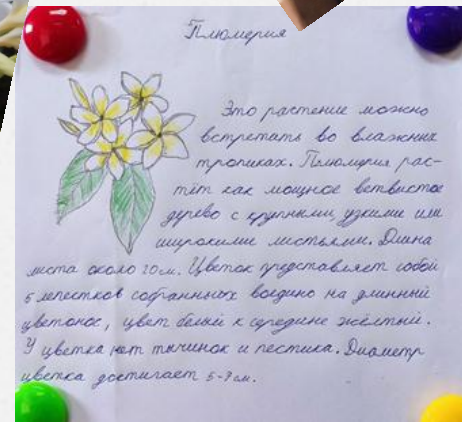 Плюмерия
Это растение можно
встретить во влажных
тропиках. Плюмерия рас-
тёт как мощное ветвистое
дерево с крупными, узкими или
широкими листьями. Длина
листа около 20 м. Цветок представляет собой
5 лепестков собранных воедино на длинный
цветонос, цвет белый к середине жёлтый.
У цветка нет тычинок и пестика. Диаметр
цветка достигает 5-7 см.